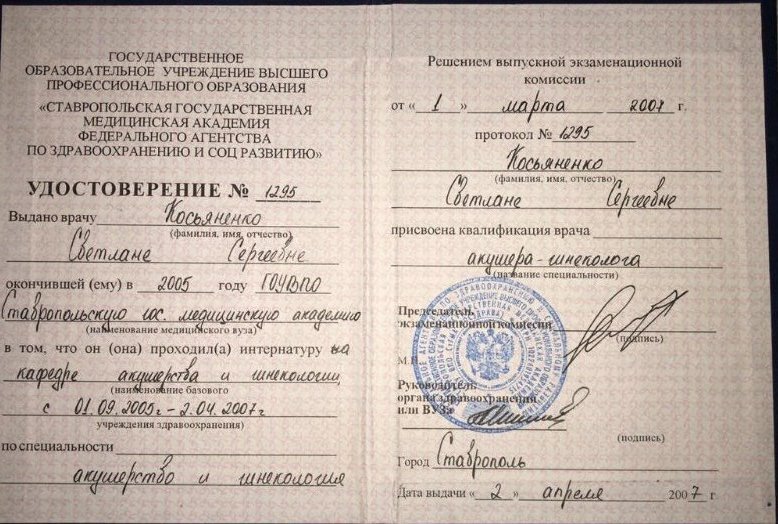 ГОСУДАРСТВЕННОЕ
ОБРАЗОВАТЕЛЬНОЕ УЧРЕЖДЕНИЕ ВЫСШЕГО
ПРОФЕССИОНАЛЬНОГО ОБРАЗОВАНИЯ
«СТАВРОПОЛЬСКАЯ ГОСУДАРСТВЕННАЯ
МЕДИЦИНСКАЯ АКАДЕМИЯ
ФЕДЕРАЛЬНОГО АГЕНТСТВА
ПО ЗДРАВООХРАНЕНИЮ И СОЦ РАЗВИТИЮ»
УДОСТОВЕРЕНИЕ № 1295
Выдано врачу Косьяненко
(фамилия, имя, отчество)
Светлане Сергеевне
окончившей (ему) в 2005 году ГОУВПО
Ставропольскую гос. медицинскую академию
(наименование медицинского вуза)
в том, что он (она) проходил(а) интернатуру на
кафедре акушерства и гинекологии
(наименование базового
с 01.09.2005г – 2.04.2007г
учреждения здравоохранения)
по специальности
акушерство и гинекология
Решением выпускной экзаменационной
комиссии
от « 1 » марта 2007 г.
протокол № 1295
Косьяненко
(фамилия, имя, отчество)
Светлане Сергеевне
присвоена квалификация врача
акушера-гинеколога
(название специальности)
Председатель
экзаменационной комиссии
(подпись)
М.П.
Руководитель
органа здравоохранения
или ВУЗа
(подпись)
Город Ставрополь
Дата выдачи « 2 » апреля 2007 г.